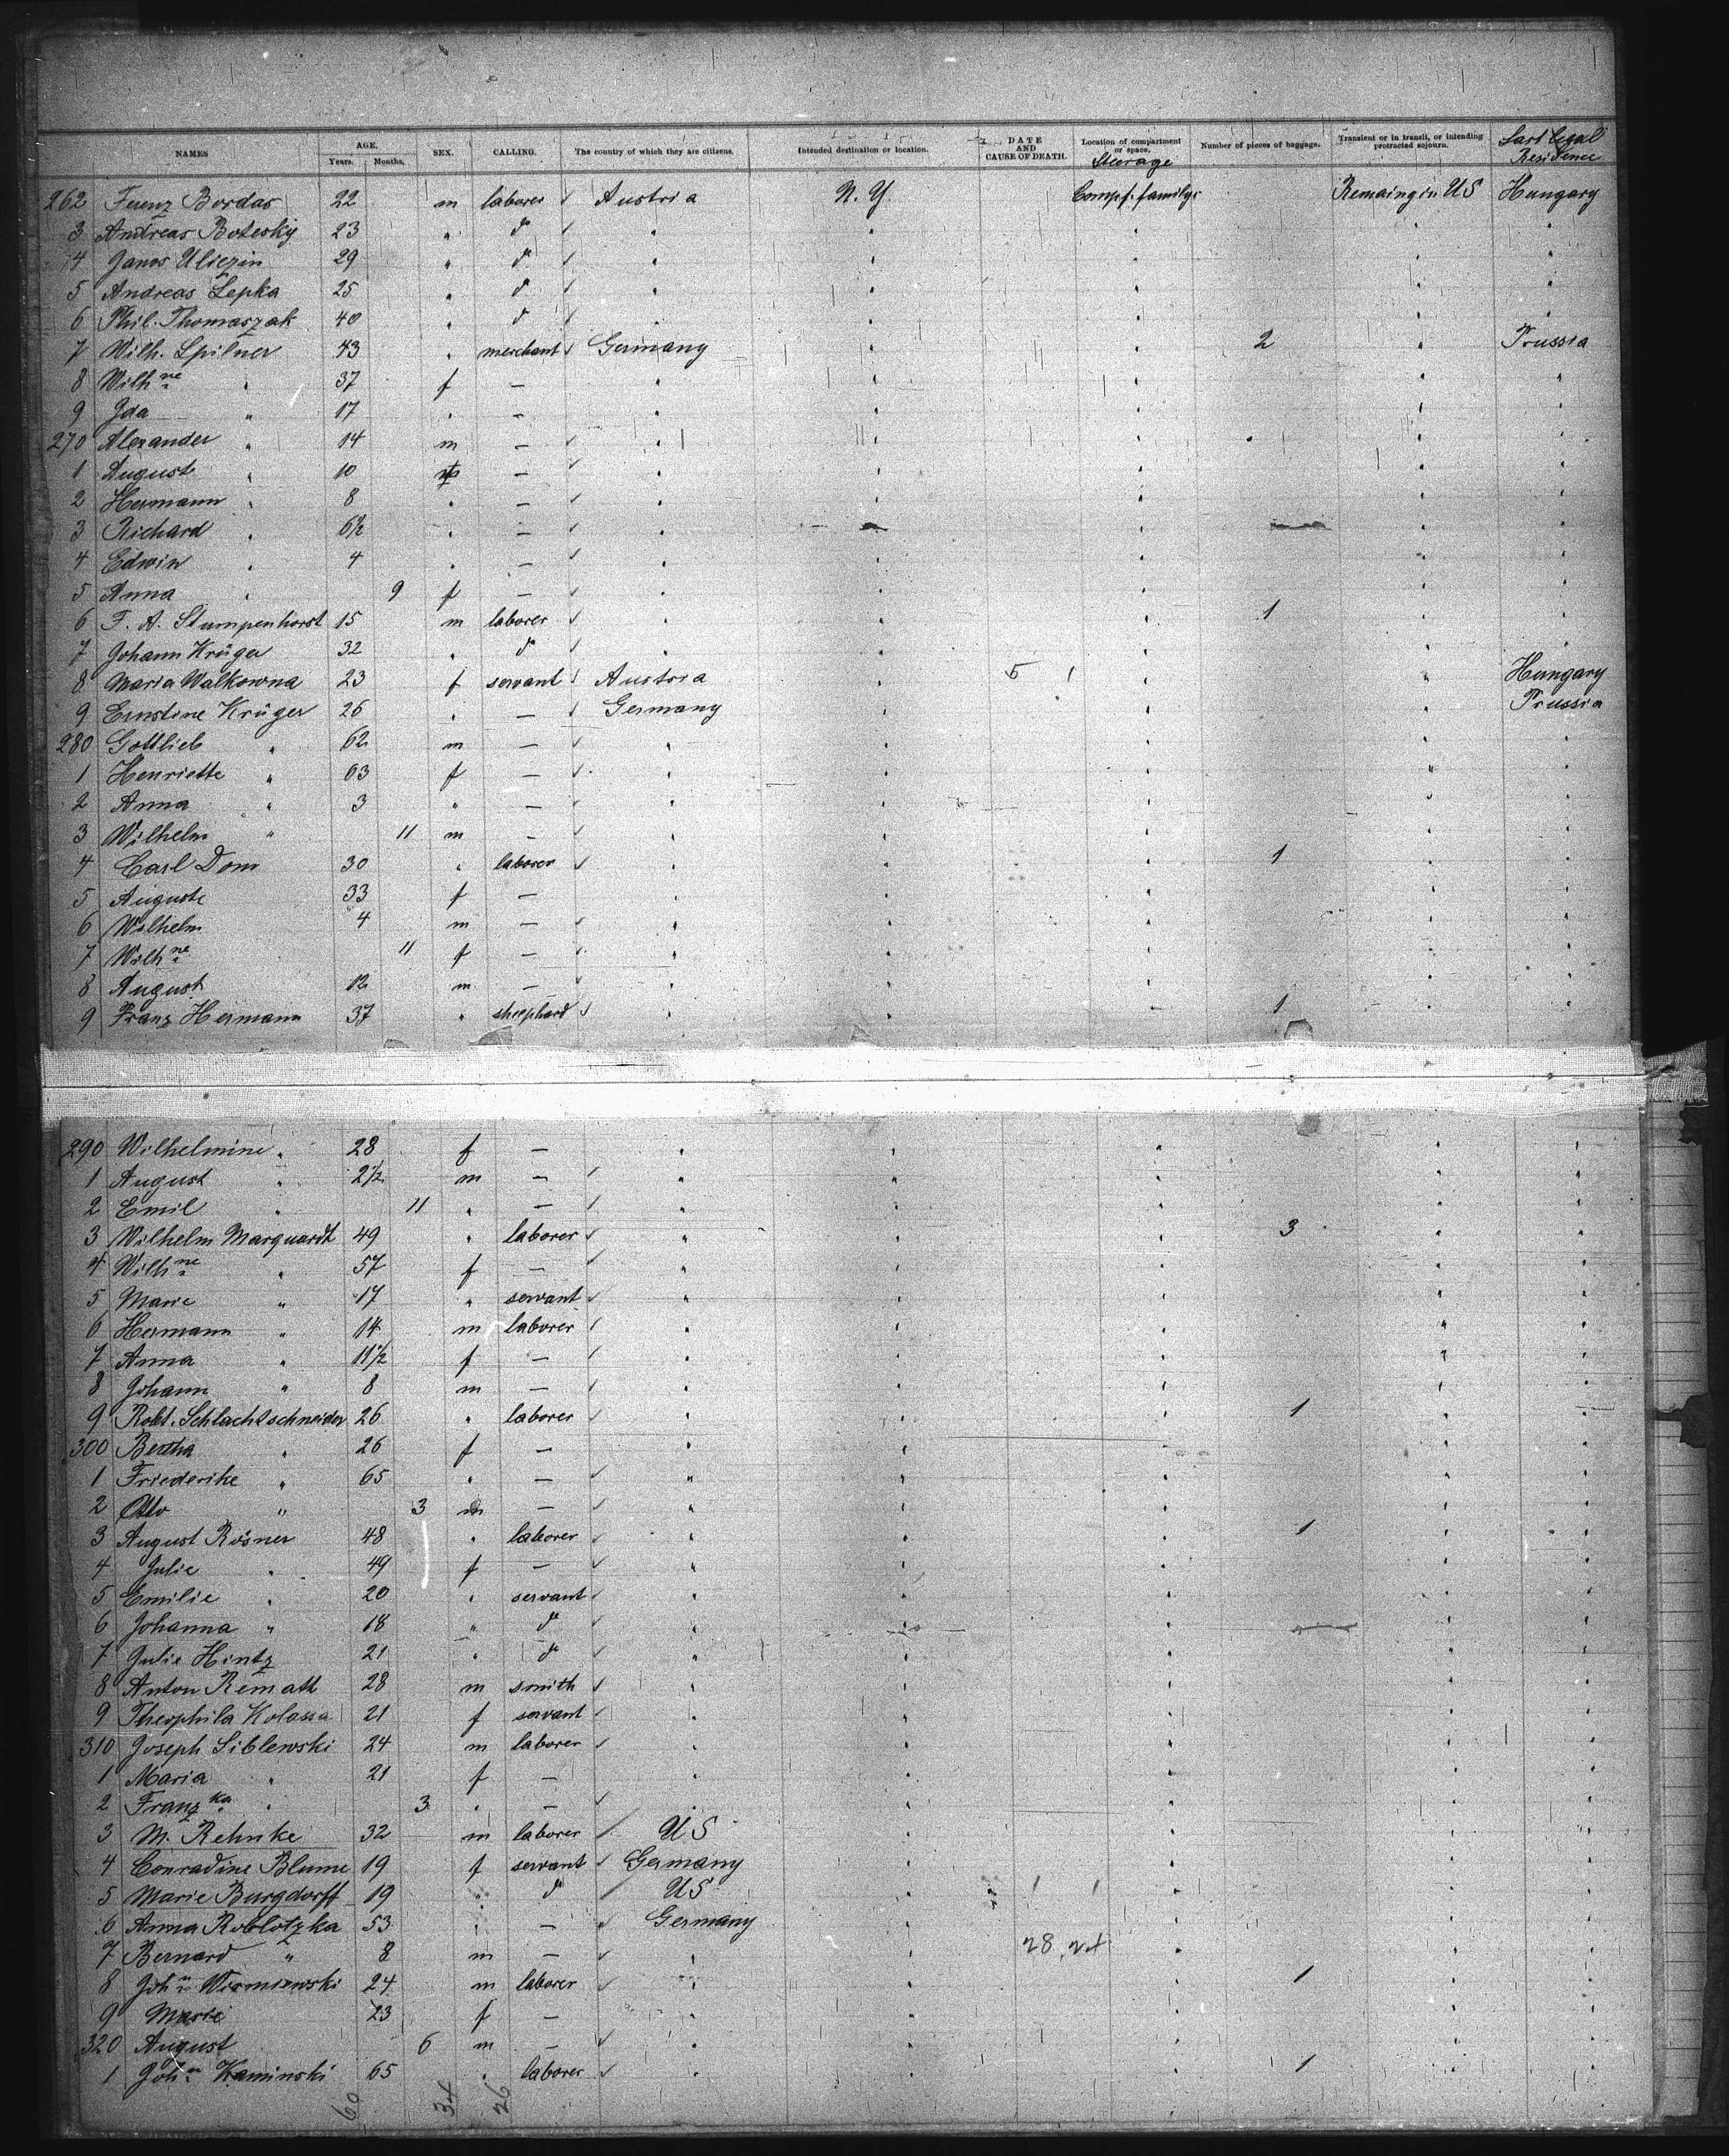 NAMES AGE. Years. Months. SEX. CALLING. The country of which they are citizens. Intended destination or location. DATE AND CAUSE OF DEATH. Location of compartment or space. Steerage Number of pieces of baggage. Transient or in transit, or intending protracted sojourn. Last legal Residence
262 Ferenz Bordas 22 m laborer ✓ Austria N. Y. Compt. familys Remaing in US Hungary
3 Andreas Botesky 23 " do ✓ " " " " "
4 Janos Uliczin 29 " do ✓ " " " " "
5 Andreas Lepka 25 " do ✓ " " " " "
6 Phil. Thomaszak 40 " do ✓ " " " " "
7 Wilh. Spilner 43 " merchant ✓ Germany " " 2 " Prussia
8 Wilhne " 37 f — " " " " "
9 Ida " 17 " — " " " " "
270 Alexander " 14 m — ✓ " " " " "
1 Auguste " 10 f — ✓ " " " " "
2 Hermann " 8 " — ✓ " " " " "
3 Richard " 6½ " — ✓ " " " " "
4 Edwin " 4 " — ✓ " " " " "
5 Anna " 9 f — ✓ " " " " "
6 F. A. Stumpenhorst 15 m laborer ✓ " " " 1 " "
7 Johann Krüger 32 " do ✓ " " " " "
8 Maria Walkowna 23 f servant ✓ Austria " 5 " " Hungary
9 Ernstine Krüger 26 " — ✓ Germany " " " Prussia
280 Gottlieb " 62 m — ✓ " " " " "
1 Henriette " 63 f — ✓ " " " " "
2 Anna " 3 " — ✓ " " " " "
3 Wilhelm " 11 m — ✓ " " " " "
4 Carl Dom 30 " laborer ✓ " " " 1 " "
5 Auguste 33 f — " " " " "
6 Wilhelm 4 m — ✓ " " " " "
7 Wilhne 11 f — ✓ " " " " "
8 August 12 m — ✓ " " " " "
9 Franz Hermann 37 " shephard ✓ " " " 1 " "
290 Wilhelmine " 28 f — " " " " "
1 August " 2½ m — ✓ " " " " "
2 Emil " 11 " — ✓ " " " " "
3 Wilhelm Marquardt 49 " laborer ✓ " " " 3 " "
4 Wilhne " 57 f — ✓ " " " " "
5 Marie " 17 " servant ✓ " " " " "
6 Hermann " 14 m laborer ✓ " " " " "
7 Anna " 11½ f — ✓ " " " " "
8 Johann " 8 m — ✓ " " " " "
9 Robt. Schlachtschneider 26 " laborer ✓ " " " 1 " "
300 Bertha " 26 f — " " " " "
1 Friederike " 65 " — ✓ " " " " "
2 Otto " 3 m — ✓ " " " " "
3 August Rösner 48 " laborer ✓ " " " 1 " "
4 Julie " 49 f — ✓ " " " " "
5 Emilie " 20 " servant ✓ " " " " "
6 Johanna " 18 " do ✓ " " " " "
7 Julie Hintz 21 " do ✓ " " " " "
8 Anton Remath 28 m smith ✓ " " " " "
9 Theophila Kolassa 21 f servant ✓ " " " " "
310 Joseph Siblewski 24 m laborer ✓ " " " " "
1 Maria " 21 f — " " " " "
2 Franzka " 3 " — ✓ " " " "
3 M. Rehnke 32 m laborer ✓ US " " " "
4 Conradine Blume 19 f servant ✓ Germany " " " "
5 Marie Burgdorff 19 " do ✓ US " " " "
6 Anna Roblotzka 53 " — ✓ Germany " " " "
7 Bernard " 8 m — ✓ " " 28 " " "
8 John Wismiewski 24 m laborer ✓ " " " 1 " "
9 Marie 23 f — " " " " "
320 August 6 m — ✓ " " " " "
1 John Kaminski 65 " laborer ✓ " " " 1 " "
60 34 26